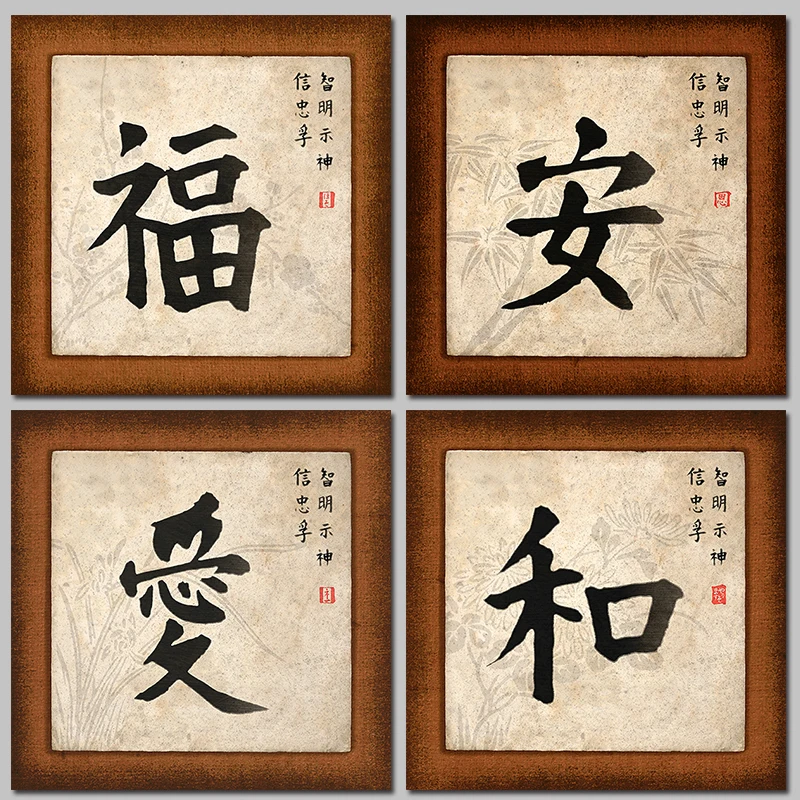 福
智明示神
信忠孚
安
智明示神
信忠孚
愛
智明示神
信忠孚
和
智明示神
信忠孚